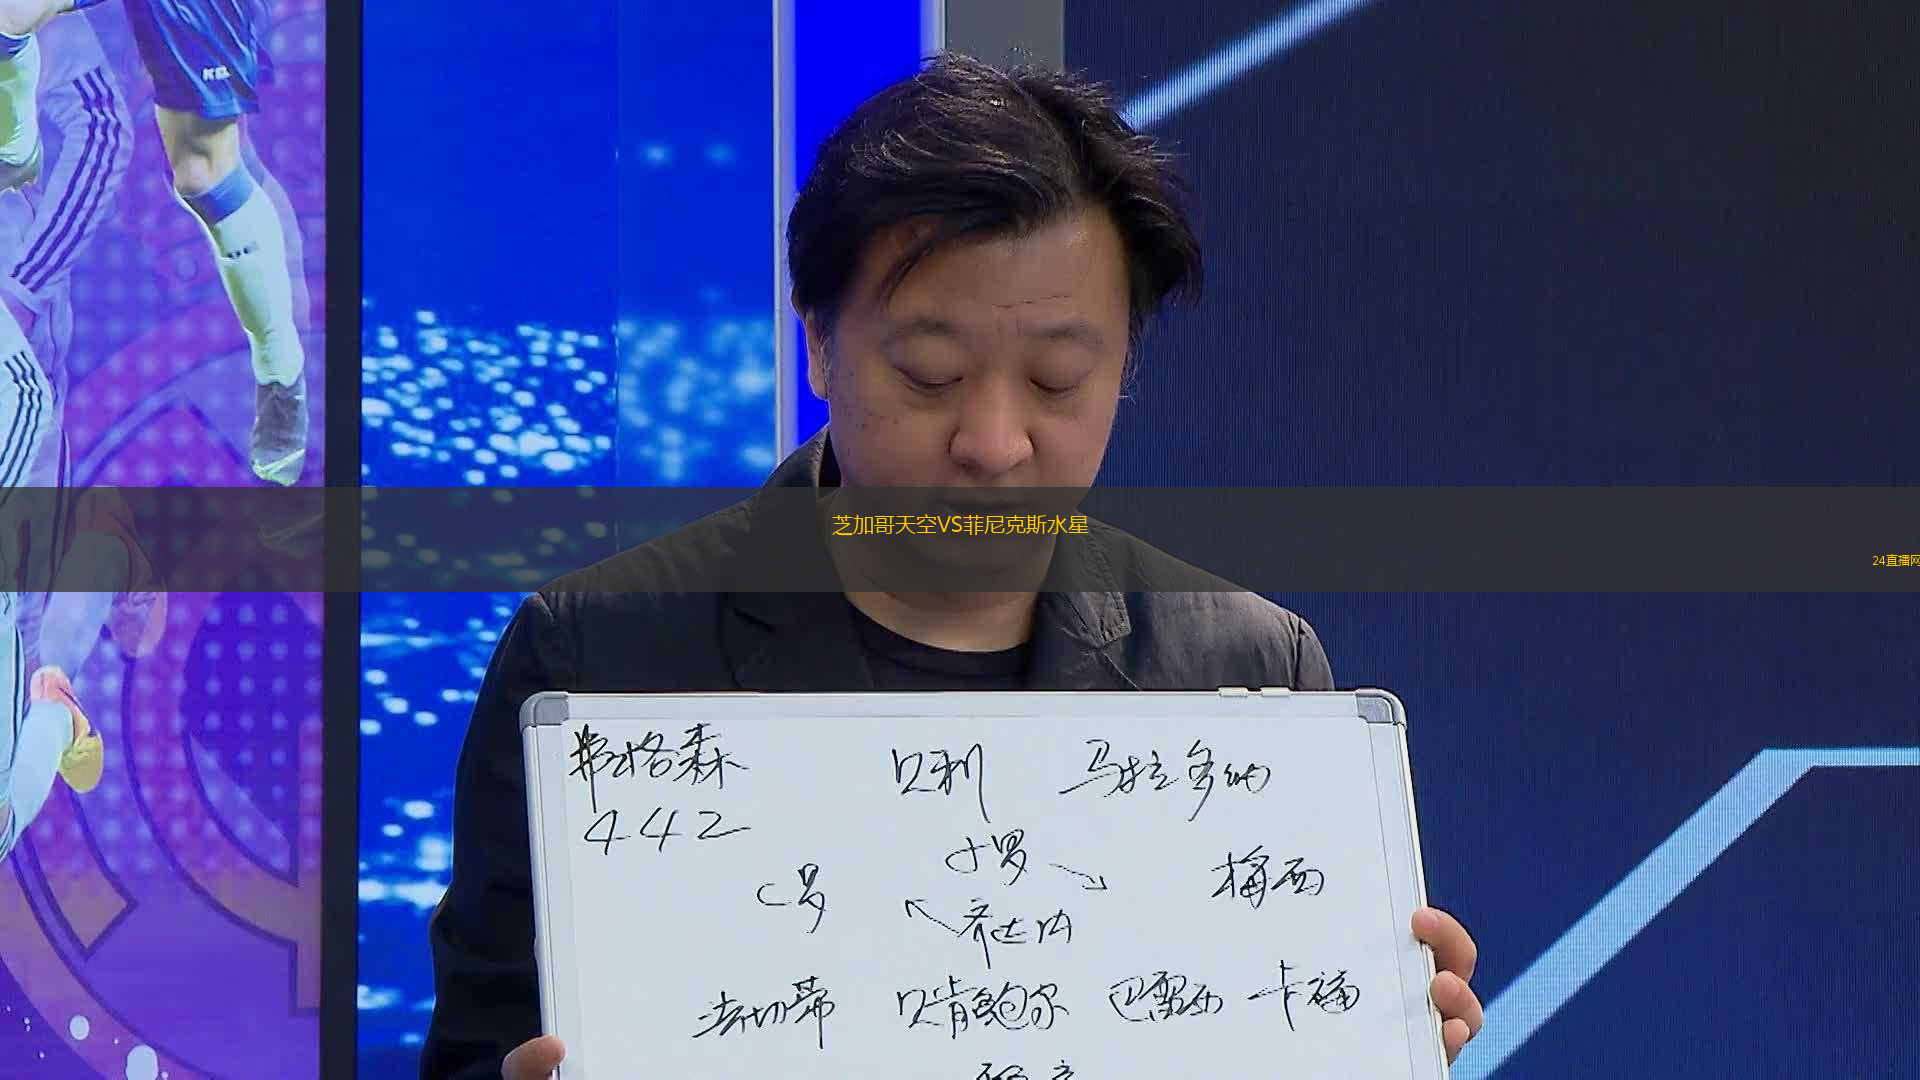 芝加哥天空VS菲尼克斯水星
24直播网
弗格森 贝利 马拉多纳
442
小罗
C罗 梅西
齐达内
法切蒂 贝肯鲍尔 巴雷西 卡福